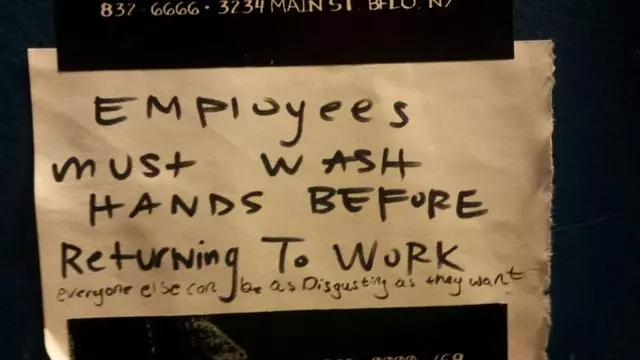 832-6666 • 3234 MAIN ST. BFLO. NY
EMPloyees
must WASH
HANDS BEFORE
Returning To WORK
everyone else can be as Disgusting as they want